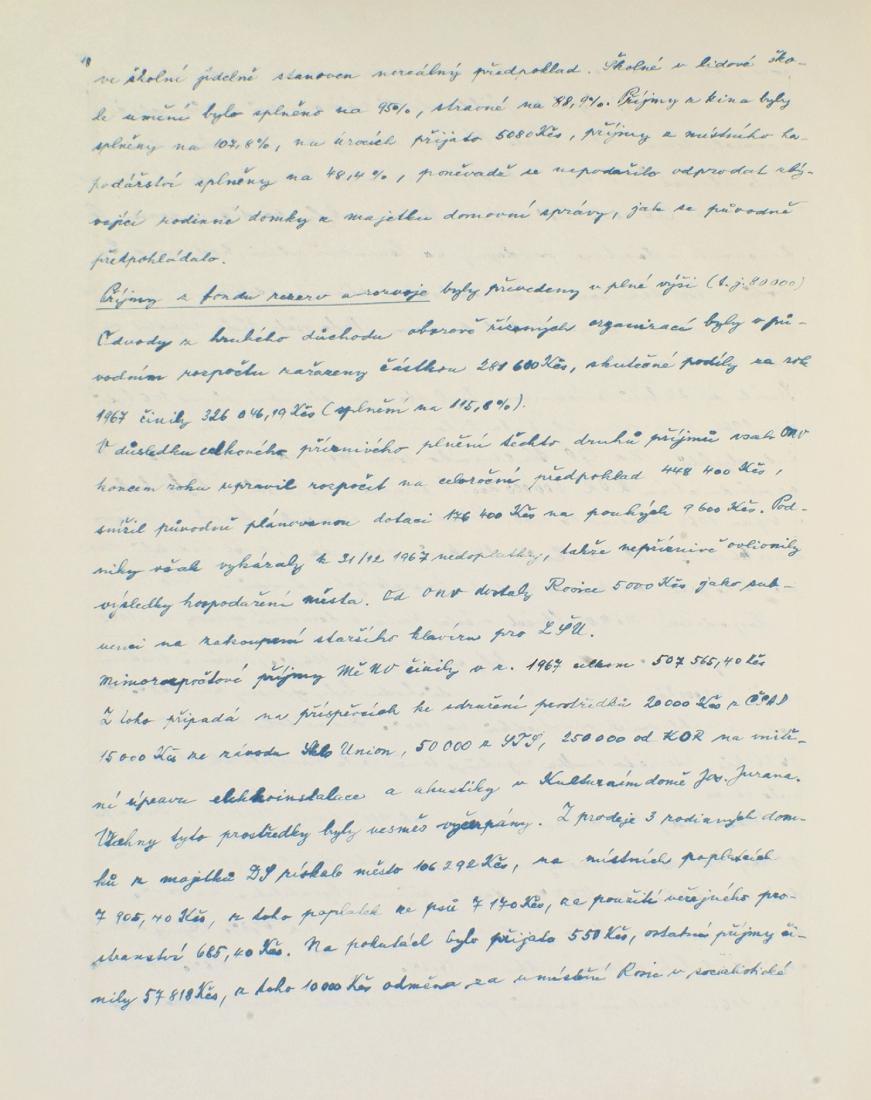 ve školní jídelně stanoven nereálný předpoklad. Školné v lidové ško-
le umění bylo splněno na 95%, stravné na 88,9%. Příjmy z kina byly
splněny na 107,8%, na úrocích přijato 5080 Kčs, příjmy z místního ho-
podářství splněny na 48,4%, poněvadž se nepodařilo odprodat zbý-
vající rodinné domky z majetku domovní správy, jak se původně
předpokládalo.
Příjmy z fondu rezerv a rozvoje byly převedeny v plné výši (t.j. 80000)
Odvody z hrubého důchodu oborově řízených organizací byly v pů-
vodním rozpočtu zařazeny částkou 281 600 Kčs, skutečné podíly za rok
1967 činily 326 046,19 Kčs (splnění na 115,8%).
V důsledku celkového příznivého plnění těchto druhů příjmů však ONV
koncem roku upravil rozpočet na celoroční předpoklad 448 400 Kčs,
snížil původně plánovanou dotaci 176 400 Kčs na pouhých 9 600 Kčs. Pod-
niky však vykázaly k 31/12 1967 nedoplatky, takže nepříznivě ovlivnily
výsledky hospodaření města. Od ONV dostaly Rosice 5000 Kčs jako sub-
venci na zakoupení staršího klavíru pro LŠU.
Mimorozpočtové příjmy MěNV činily v r. 1967 celkem 507 565,40 Kčs
Z toho připadá na příspěvcích ke sdružení prostředků 20 000 Kčs z ČSAD
15 000 Kčs ze závodu Sklo Union, 50 000 z STS, 250 000 od KOR na vnitř-
ní úpravu elektroinstalace a akustiky v Kulturním domě Jos. Jurana.
Všechny tyto prostředky byly vesměs vyčerpány. Z prodeje 3 rodinných dom-
ků z majetku DS získalo město 106 292 Kčs, na místních poplatcích
7 905,40 Kčs, z toho poplatek ze psů 7 170 Kčs, za použití veřejného pro-
stranství 685,40 Kčs. Na pokutách bylo přijato 550 Kčs, ostatní příjmy či-
nily 57 818 Kčs, z toho 10 000 Kčs odměna za umístění Rosic v socialistické